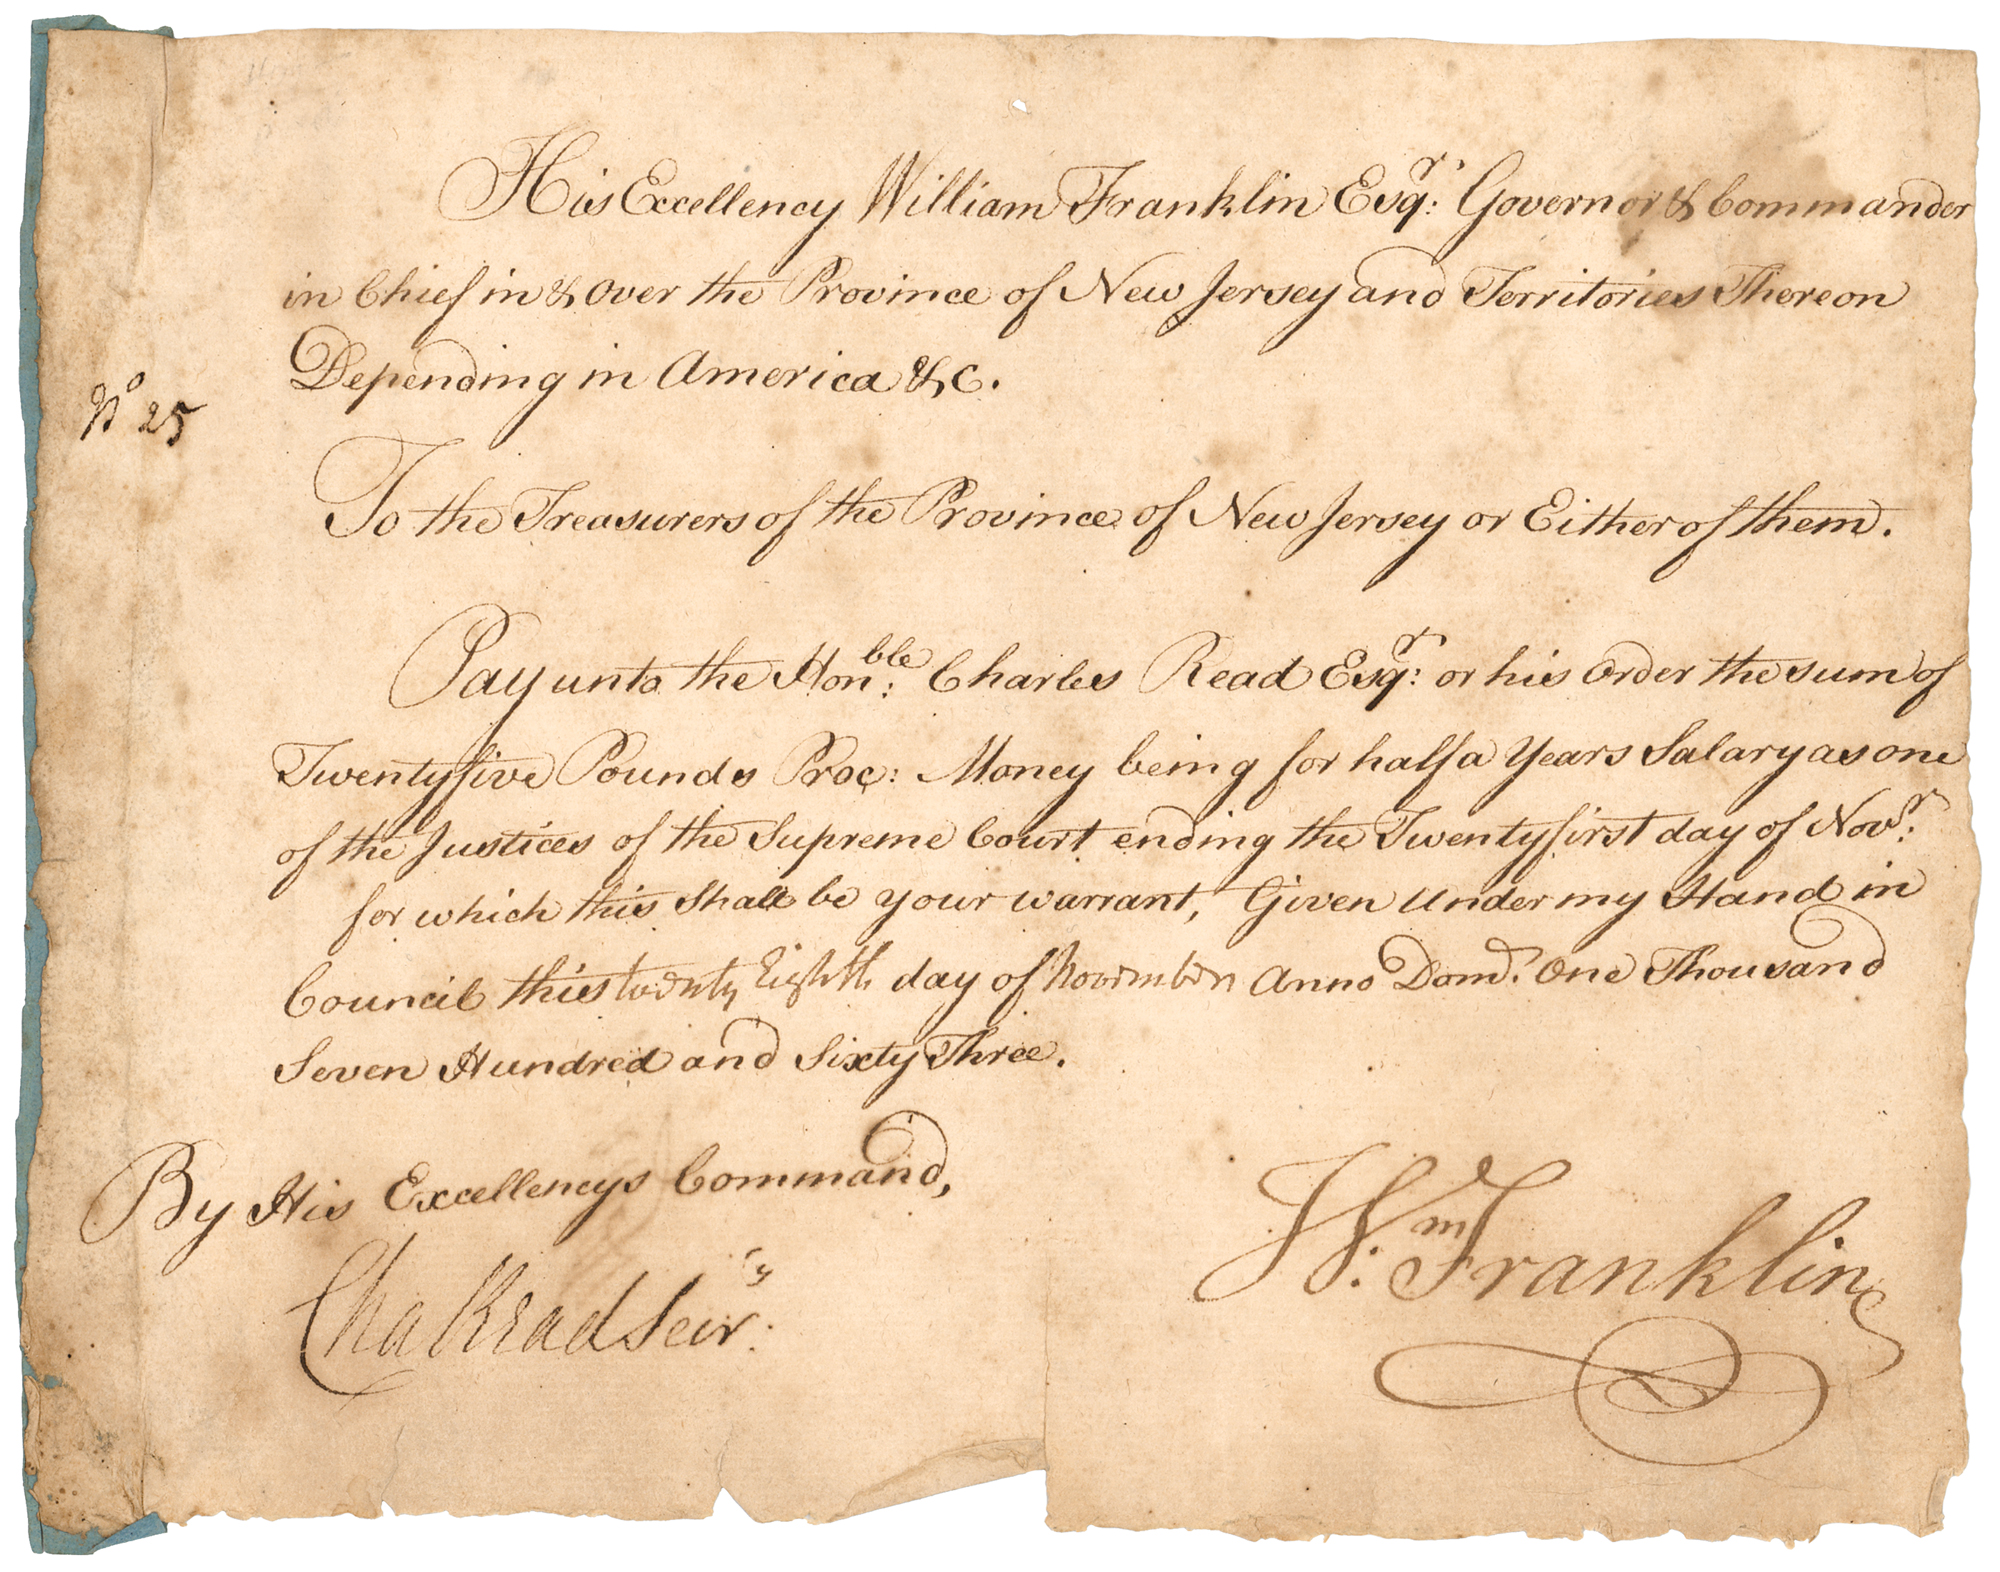 His Excellency William Franklin Esqr: Governor & Commander
in Chief in & Over the Province of New Jersey and Territories Thereon
Depending in America &c.
No 25
To the Treasurers of the Province of New Jersey or Either of them.
Pay unto the Honble: Charles Read Esqr: or his Order the sum of
Twentyfive Pounds Proc: Money being for half a Years Salary as one
of the Justices of the Supreme Court ending the Twentyfirst day of Novr:
for which this shall be your warrant, Given Under my Hand in
Council this twenty Eighth day of November Anno Dom. One Thousand
Seven Hundred and Sixty Three.
By His Excellencys Command,
Cha Read Secry.
Wm: Franklin